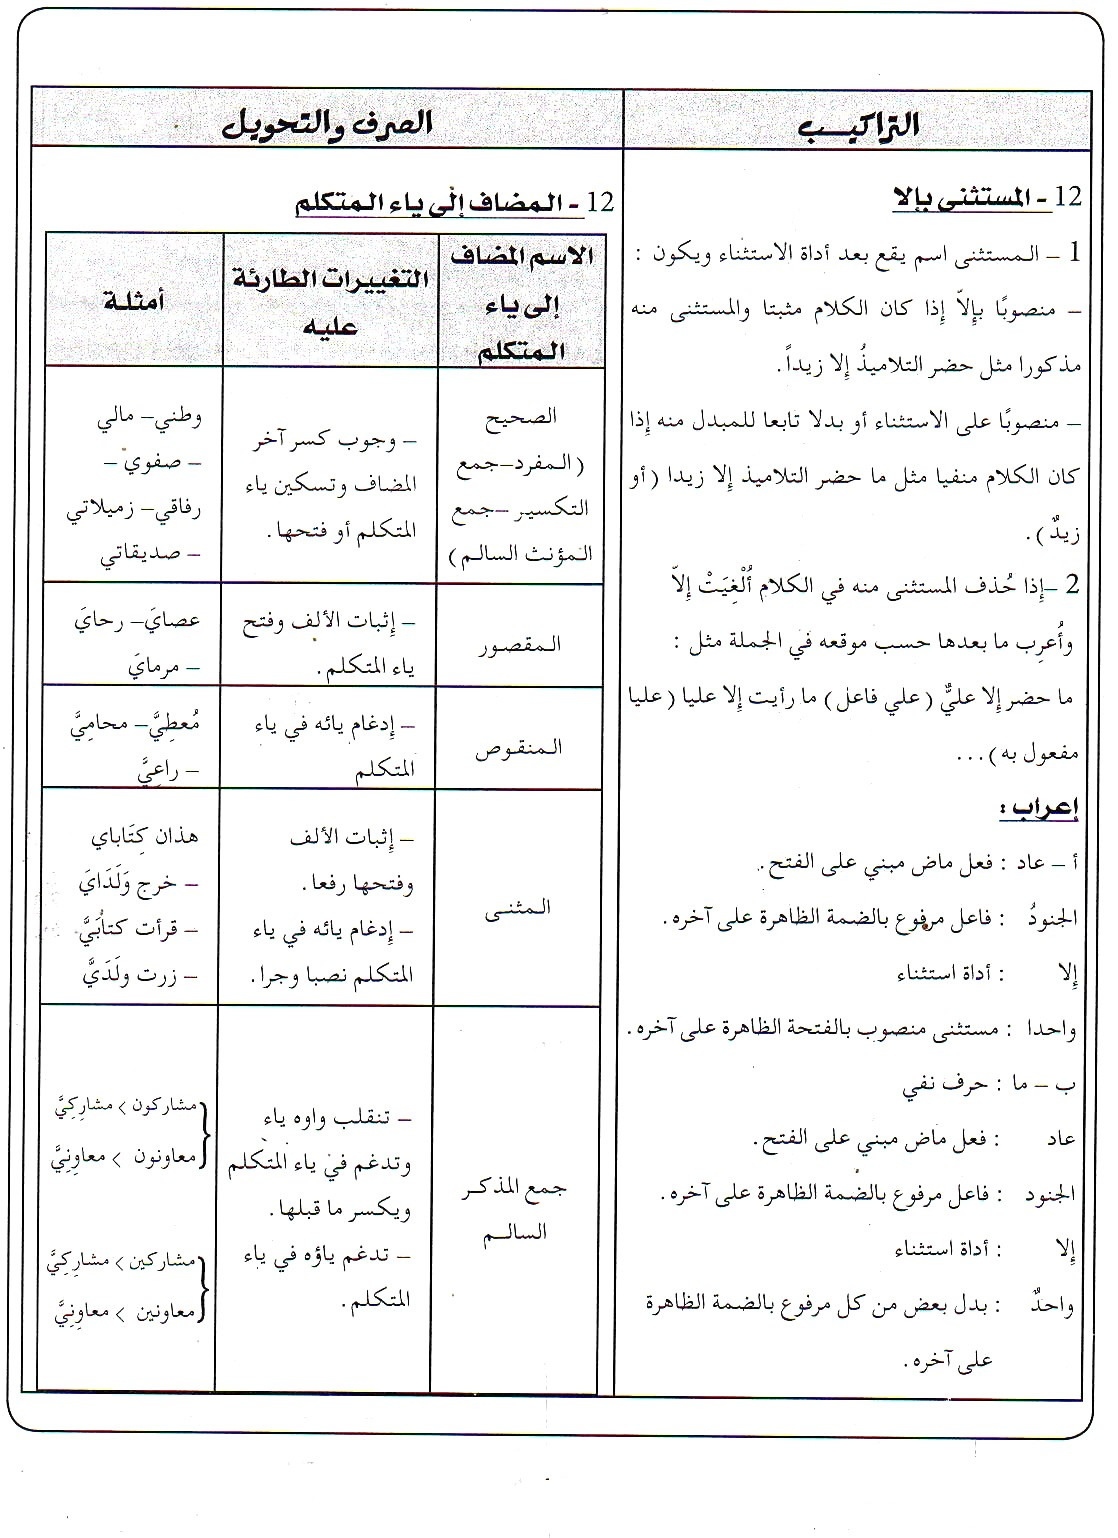 التراكيب
12 - المستثنى بإلا
1 – المستثنى اسم يقع بعد أداة الاستثناء ويكون :
– منصوبًا بإِلاّ إِذا كان الكلام مثبتا والمستثنى منه
مذكورا مثل حضر التلاميذُ إِلا زيداً.
– منصوبًا على الاستثناء أو بدلا تابعا للمبدل منه إِذا
كان الكلام منفيا مثل ما حضر التلاميذ إِلا زيدا ( أو
زيدٌ ).
2 –إِذا حُذف المستثنى منه في الكلام أُلْغِيَتْ إِلاّ
وأُعرِب ما بعدها حسب موقعه في الجملة مثل :
ما حضر إِلا عليٌّ ( علي فاعل ) ما رأيت إِلا عليا ( عليا
مفعول به ) ...
إعراب :
أ – عاد : فعل ماض مبني على الفتح.
الجنودُ : فاعل مرفوع بالضمة الظاهرة على آخره.
إِلا : أداة استثناء
واحدا : مستثنى منصوب بالفتحة الظاهرة على آخره.
ب – ما : حرف نفي
عاد : فعل ماض مبني على الفتح.
الجنود : فاعل مرفوع بالضمة الظاهرة على آخره.
إِلا : أداة استثناء
واحدٌ : بدل بعض من كل مرفوع بالضمة الظاهرة
على آخره.
الصرف والتحويل
12 - المضاف إلى ياء المتكلم
الاسم المضاف
إلى ياء
المتكلم
التغييرات الطارئة
عليه
أمثلة
الصحيح
( المفرد–جمع
التكسير –جمع
المؤنث السالم )
– وجوب كسر آخر
المضاف وتسكين ياء
المتكلم أو فتحها.
وطني– مالي
– صفوي –
رفاقي– زميلاتي
– صديقاتي
المقصور
– إِثبات الألف وفتح
ياء المتكلم.
عصايَ– رحايَ
– مرمايَ
المنقوص
– إِدغام يائه في ياء
المتكلم
مُعطِيَّ– محامِيَّ
– راعِيَّ
المثنى
– إِثبات الألف
وفتحها رفعا.
– إِدغام يائه في ياء
المتكلم نصبا وجرا.
هذان كِتَاباي
– خرج وَلَدَايَ
– قرأت كتابَيَّ
– زرت ولَدَيَّ
جمع المذكر
السالم
– تنقلب واوه ياء
وتدغم في ياء المتكلم
ويكسر ما قبلها.
– تدغم ياؤه في ياء
المتكلم.
مشاركون > مشارِكِيَّ
معاونون > معاوِنِيَّ
مشاركين > مشاركِيَّ
معاونين > معاوِنِيَّ